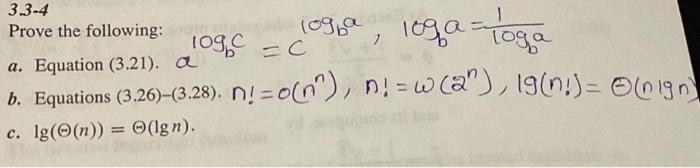 3.3-4
Prove the following:
a. Equation (3.21). a^{log_b c} = c^{log_b a}, log_b a = 1/log_b a
b. Equations (3.26)–(3.28). n! = o(n^n), n! = ω(2^n), lg(n!) = Θ(n lg n)
c. lg(Θ(n)) = Θ(lg n).